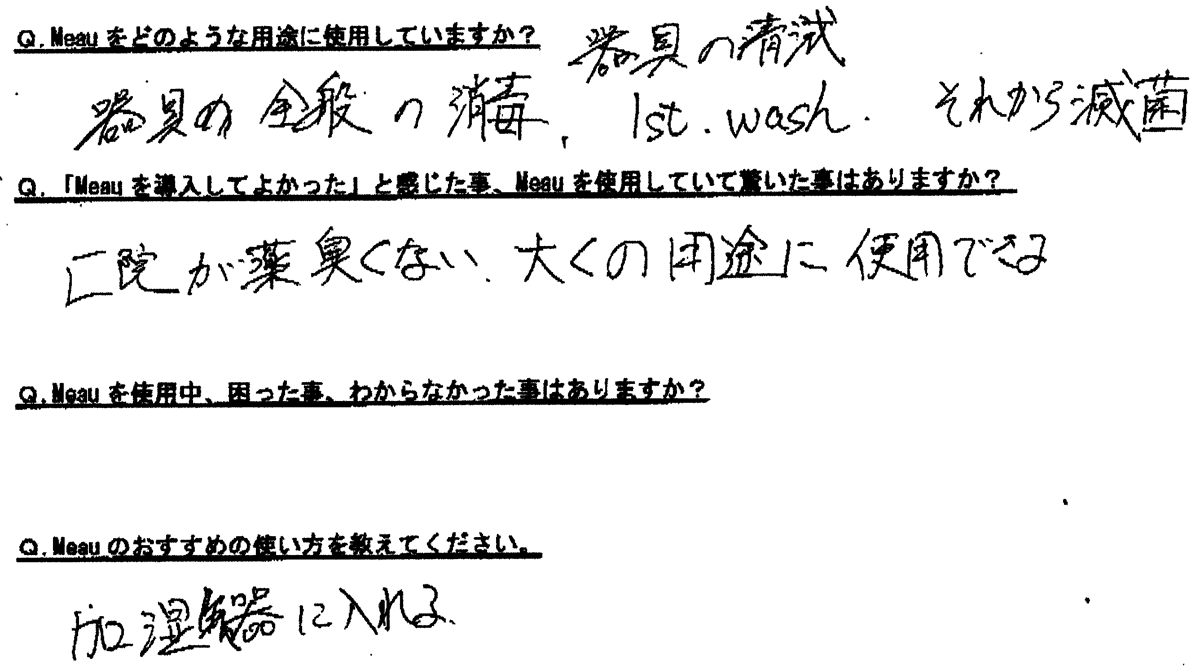 Q.Meauをどのような用途に使用していますか？
器具の清滅
器具の全般の消毒、1st.wash. それから滅菌
Q.「Meauを導入してよかった」と感じた事、Meauを使用していて驚いた事はありますか？
医院が薬臭くない、大くの用途に使用できる
Q.Meauを使用中、困った事、わからなかった事はありますか？
Q.Meauのおすすめの使い方を教えてください。
加湿器に入れる。